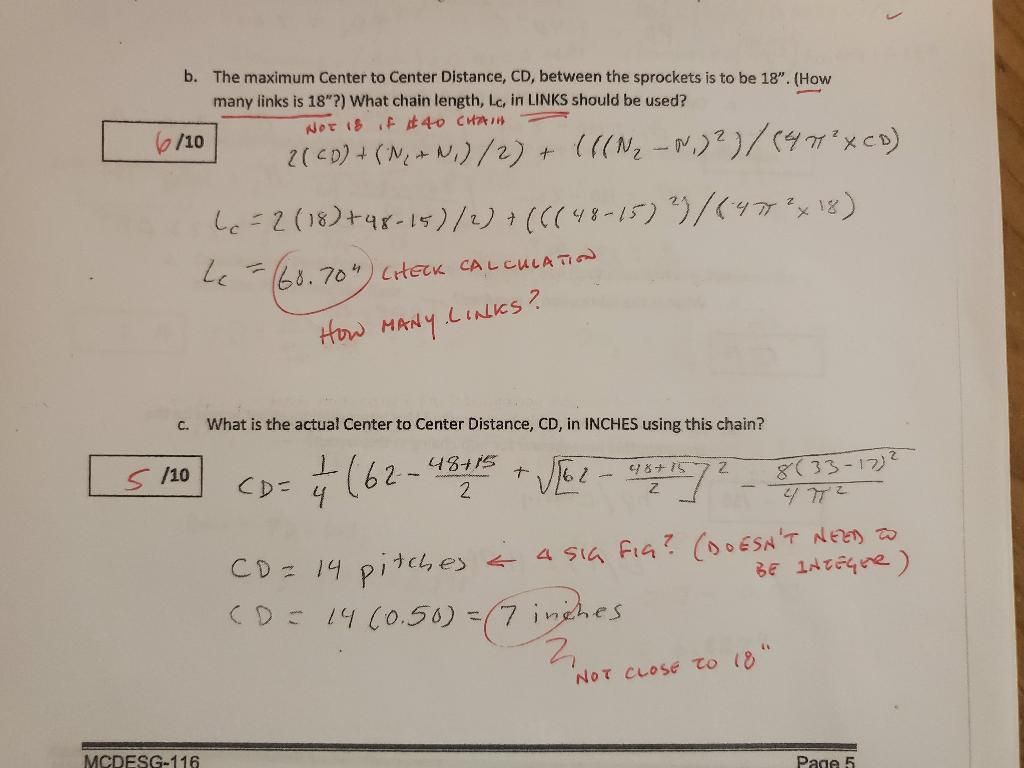 b. The maximum Center to Center Distance, CD, between the sprockets is to be 18". (How
many links is 18"?) What chain length, Lc, in LINKS should be used?
NOT 18 IF #40 CHAIN
6/10
2(CD) + (N₂ + N₁)/2) + (((N₂ - N₁)²)/(4π² x CD)
Lc = 2(18)+48-15)/2) + (((48-15)²)/(4π² x 18)
Lc = 68.70" CHECK CALCULATION
HOW MANY LINKS?
c. What is the actual Center to Center Distance, CD, in INCHES using this chain?
5/10
CD = 1/4 (62 - 48+15/2 + √[62 - 48+15/2]² - 8(33-17)²/4π²
CD = 14 pitches ← 4 SIG FIG? (DOESN'T NEED TO
BE INTEGER)
CD = 14 (0.50) = 7 inches
NOT CLOSE TO 18"
MCDESG-116
Page 5